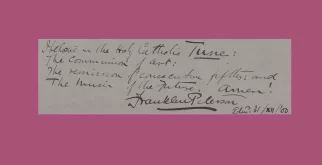 I believe in the Holy Catholic Tune:
The Communion of Art:
The remission of consecutive fifths: and
The Music of the Future. Amen!
Franklin Peterson
Edin. 21/XII/00